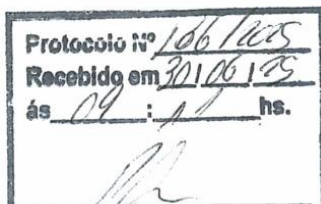 Protocolo Nº 166/2025
Recebido em 30/06/25
ás 09 : 11 hs.